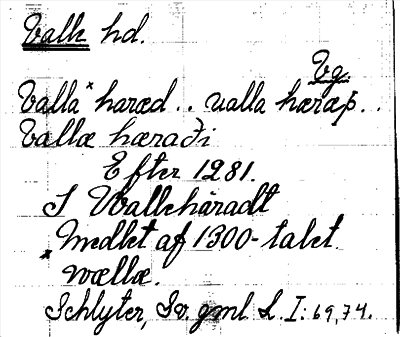 Valle hd.
Vg.
Valla* haræd .. ualla hæraþ ..
Vallæ hæraði
Efter 1281.
I Wallehäradt
* Medlet af 1300-talet
wællæ.
Schlyter, Sv. gml. L. I: 69, 74.